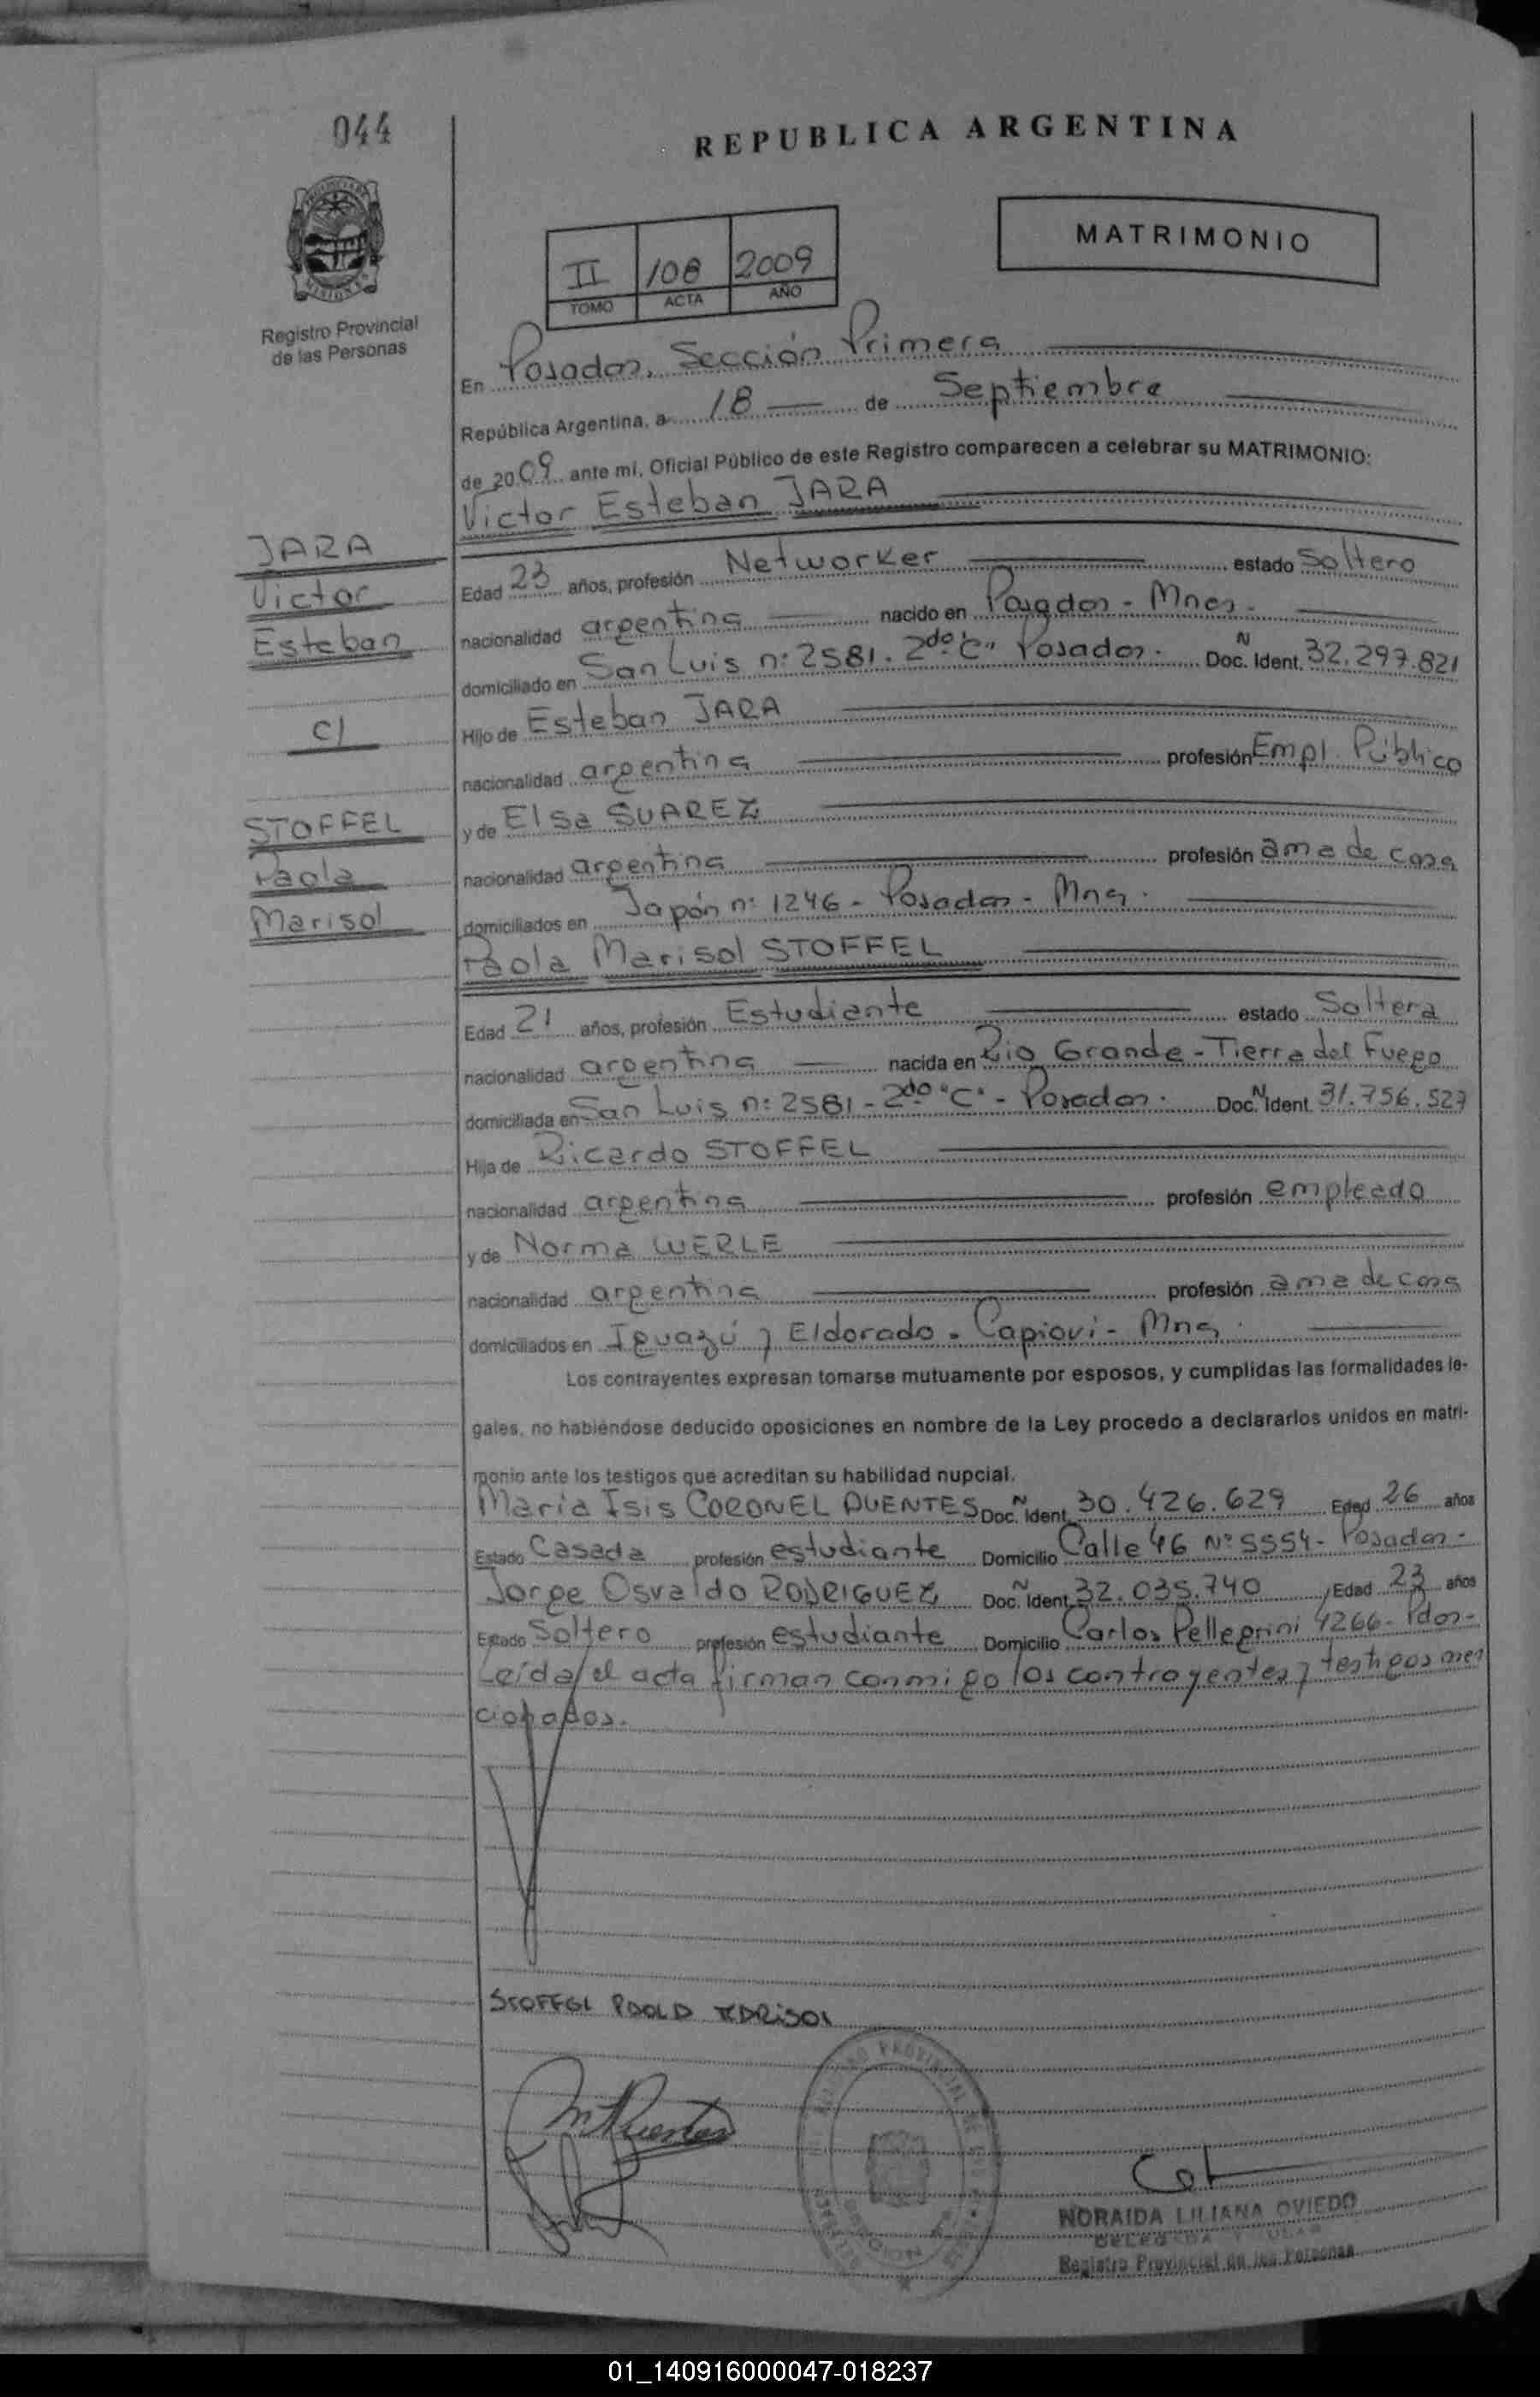 044
REPUBLICA ARGENTINA
MATRIMONIO
II 108 2009
TOMO ACTA AÑO
Registro Provincial
de las Personas
En Posadas, Sección Primera
República Argentina, a 18 de Septiembre
de 2009 ante mí, Oficial Público de este Registro comparecen a celebrar su MATRIMONIO:
Victor Esteban JARA
JARA
Victor
Esteban
c/
STOFFEL
Paola
Marisol
Edad 23 años, profesión Networker estado Soltero
nacionalidad argentina nacido en Posadas - Mnes.
domiciliado en San Luis nº 2581. 2do "C" Posadas. Doc. N Ident. 32.297.821
Hijo de Esteban JARA
nacionalidad argentina profesión Empl. Público
y de Elsa SUAREZ
nacionalidad argentina profesión ama de casa
domiciliados en Japón nº 1246 - Posadas - Mns.
Paola Marisol STOFFEL
Edad 21 años, profesión Estudiante estado Soltera
nacionalidad argentina nacida en Rio Grande - Tierra del Fuego
domiciliada en San Luis nº 2581 - 2do "C" - Posadas. Doc. N Ident. 31.756.527
Hija de Ricardo STOFFEL
nacionalidad argentina profesión empleado
y de Norma WERLE
nacionalidad argentina profesión ama de casa
domiciliados en Iguazú y Eldorado - Capioví - Mns.
Los contrayentes expresan tomarse mutuamente por esposos, y cumplidas las formalidades le-
gales, no habiéndose deducido oposiciones en nombre de la Ley procedo a declararlos unidos en matri-
monio ante los testigos que acreditan su habilidad nupcial.
Maria Isis CORONEL PUENTES Doc. N Ident. 30.426.629 Edad 26 años
Estado Casada profesión estudiante Domicilio Calle 46 Nº 5554 - Posadas -
Jorge Osvaldo RODRIGUEZ Doc. N Ident. 32.035.740, Edad 23 años
Estado Soltero profesión estudiante Domicilio Carlos Pellegrini 4266 - Pdas -
Leída el acta firman conmigo los contrayentes y testigos men
cionados.
STOFFEL PAOLA MARISOL
MPuentes
NORAIDA LILIANA OVIEDO
Registro Provincial de las Personas
01_140916000047-018237